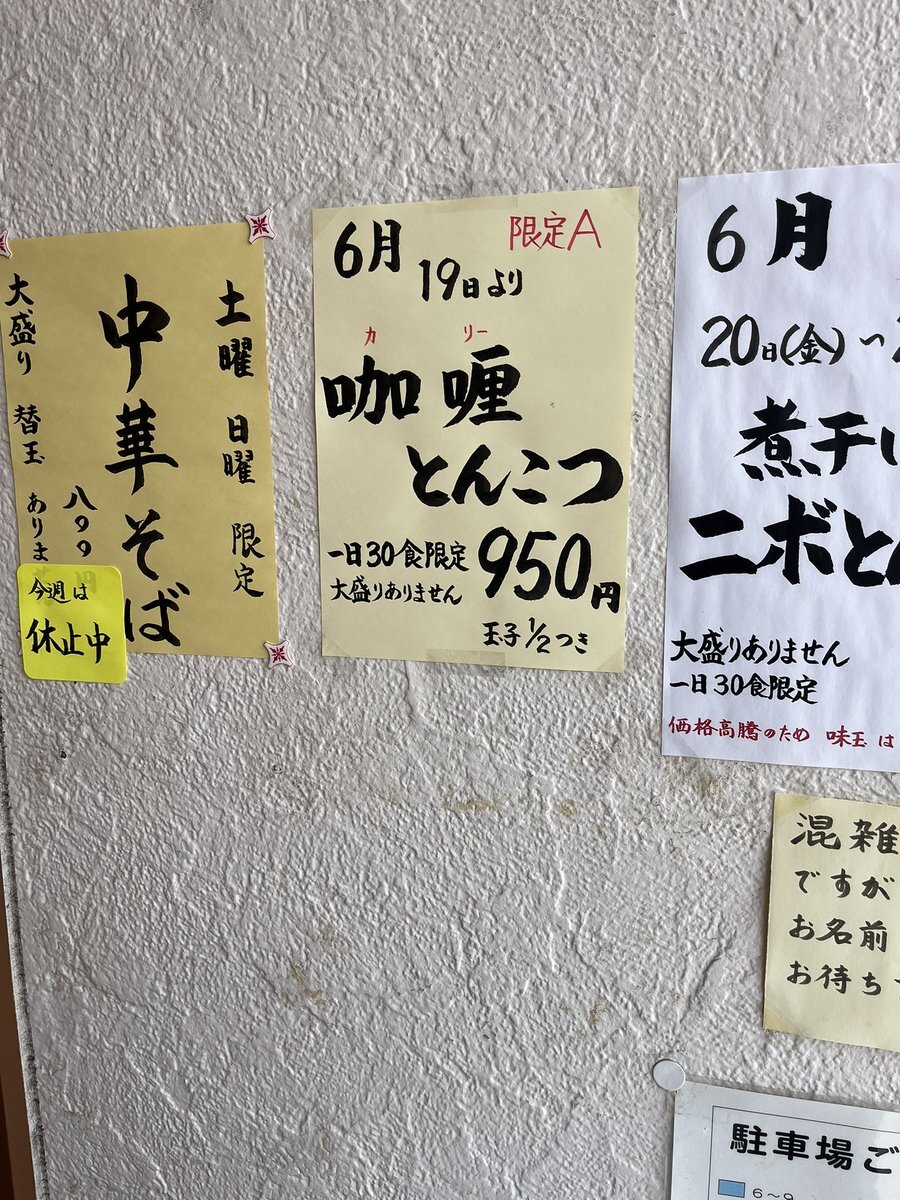 土曜 日曜 限定
中華そば
八九九
大盛り 替玉 ありま
今週は
休止中
6月
限定A
19日より
カリー
咖喱
とんこつ
一日30食限定
大盛りありません
950円
玉子1/2つき
6月
20日(金)~
煮干し
ニボと
大盛りありません
一日30食限定
価格高騰のため 味玉は
混雑
ですが
お名前
お待ち
駐車場ご
6~9